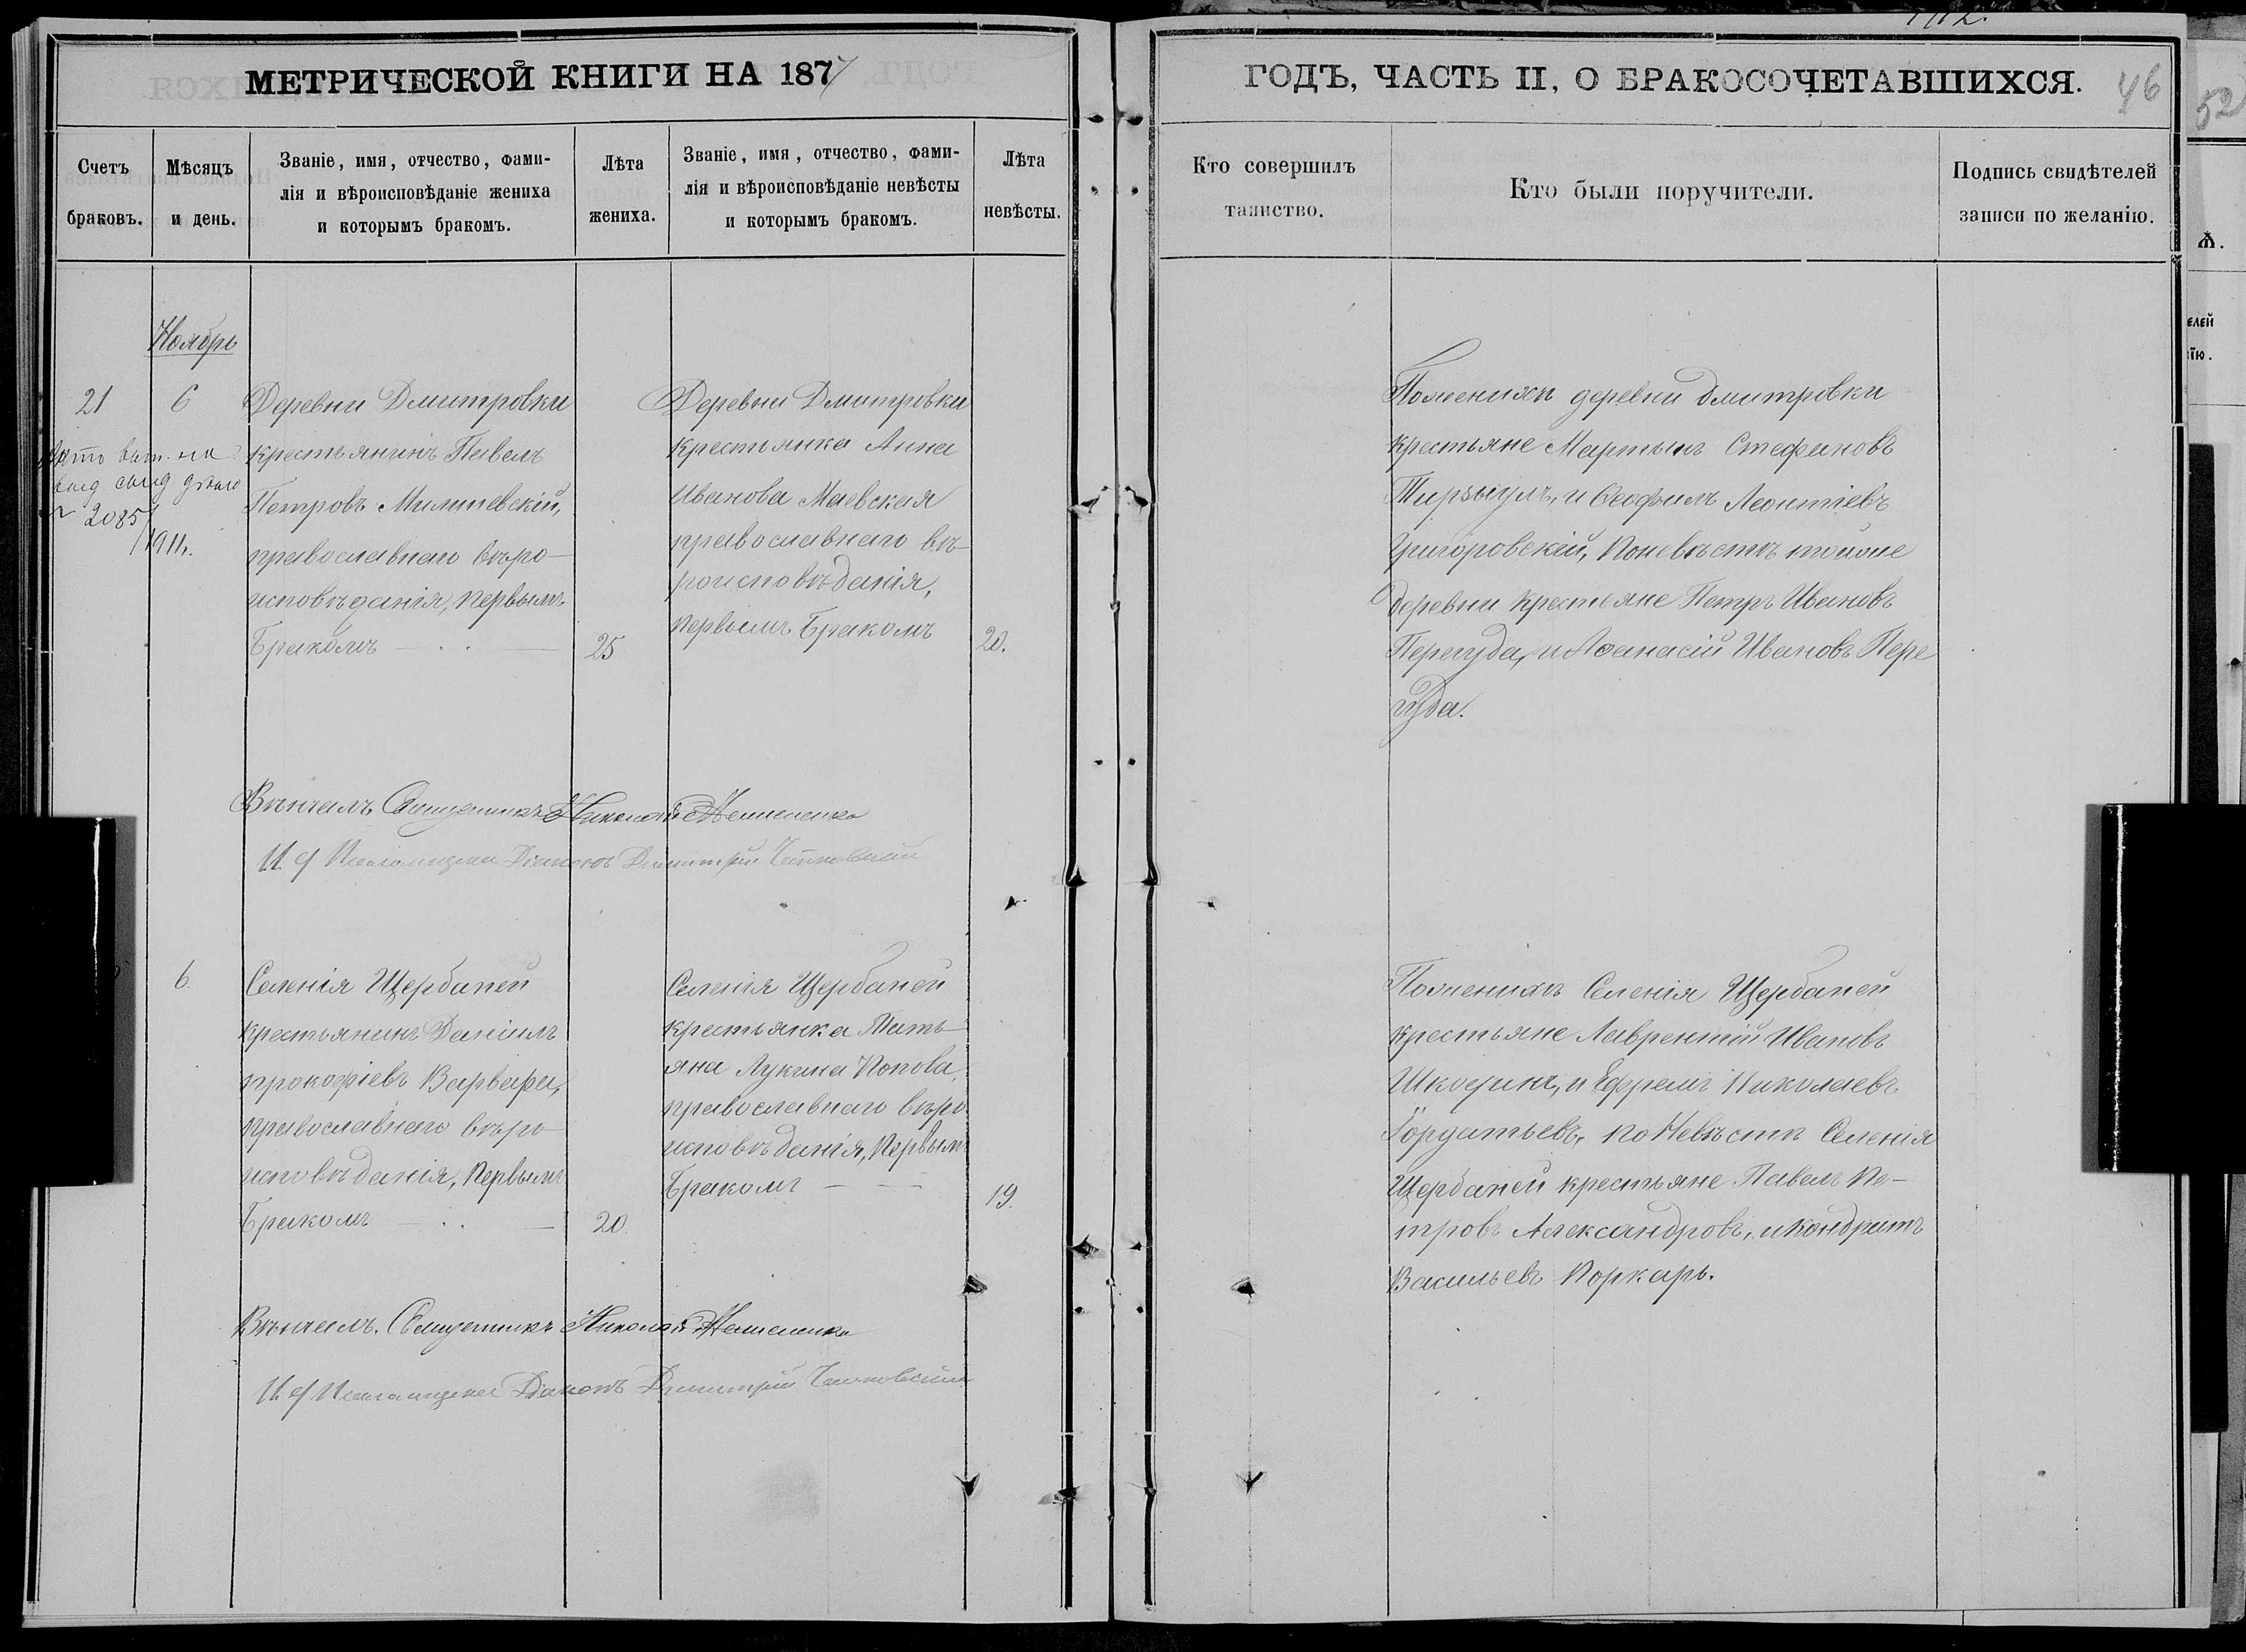 МЕТРИЧЕСКОЙ КНИГИ НА 1877
ГОДЪ, ЧАСТЬ II, О БРАКОСОЧЕТАВШИХСЯ.
46
52
Счетъ браковъ.
Мѣсяцъ и день.
Званіе, имя, отчество, фами-
лія и вѣроисповѣданіе жениха
и которымъ бракомъ.
Лѣта
жениха.
Званіе, имя, отчество, фами-
лія и вѣроисповѣданіе невѣсты
и которымъ бракомъ.
Лѣта
невѣсты.
Кто совершилъ
таинство.
Кто были поручители.
Подпись свидѣтелей
записи по желанію.
Ноябрь
21
6
2085/
1911.
Деревни Дмитровки
крестьянинъ Павелъ
Петровъ
православнаго вѣро-
исповѣданія, первымъ
Бракомъ
25
Деревни Дмитровки
крестьянка Анна
Иванова Маевская
православнаго вѣ-
роисповѣданія,
первымъ Бракомъ
20.
По женихѣ деревни Дмитровки
крестьяне Мартынъ Стефановъ
и Ѳеофилъ Леонтіевъ
Григоровскій, По невѣстѣ тойже
деревни крестьяне Петръ Ивановъ
Перегуда, и Аѳанасій Ивановъ Пере
гуда.
Вѣнчалъ Священникъ Николай
И. д. Псаломщика Діаконъ Димитрій
6.
Селенія Щербаней
крестьянинъ Даніилъ
Прокофіевъ Варвара,
православнаго вѣро-
исповѣданія, первымъ
Бракомъ
20.
Селенія Щербаней
крестьянка Тать-
яна Лукина Попова,
православнаго вѣро
исповѣданія, первымъ
Бракомъ
19.
По женихѣ Селенія Щербаней
крестьяне Лаврентій Ивановъ
и Ефремъ Николаевъ
по Невѣстѣ Селенія
Щербаней крестьяне Павелъ Пе-
тровъ Александровъ, и Кондратъ
Васильевъ Поркарь.
Вѣнчалъ. Священникъ Николай
И. д. Псаломщика Діаконъ Димитрій